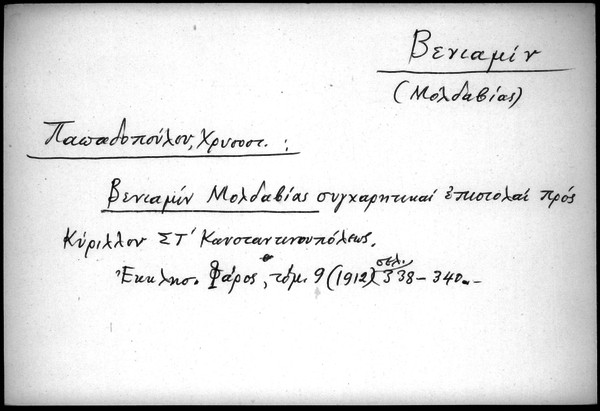 Βενιαμίν
(Μολδαβίας)
Παπαδοπούλου, Χρυσοστ. :
Βενιαμίν Μολδαβίας συγχαρητικαί ἐπιστολαί πρός
Κύριλλον ΣΤ΄ Κωνσταντινουπόλεως.
Ἐκκλησ. Φάρος, τόμ. 9 (1912) σελ. 338-340.-